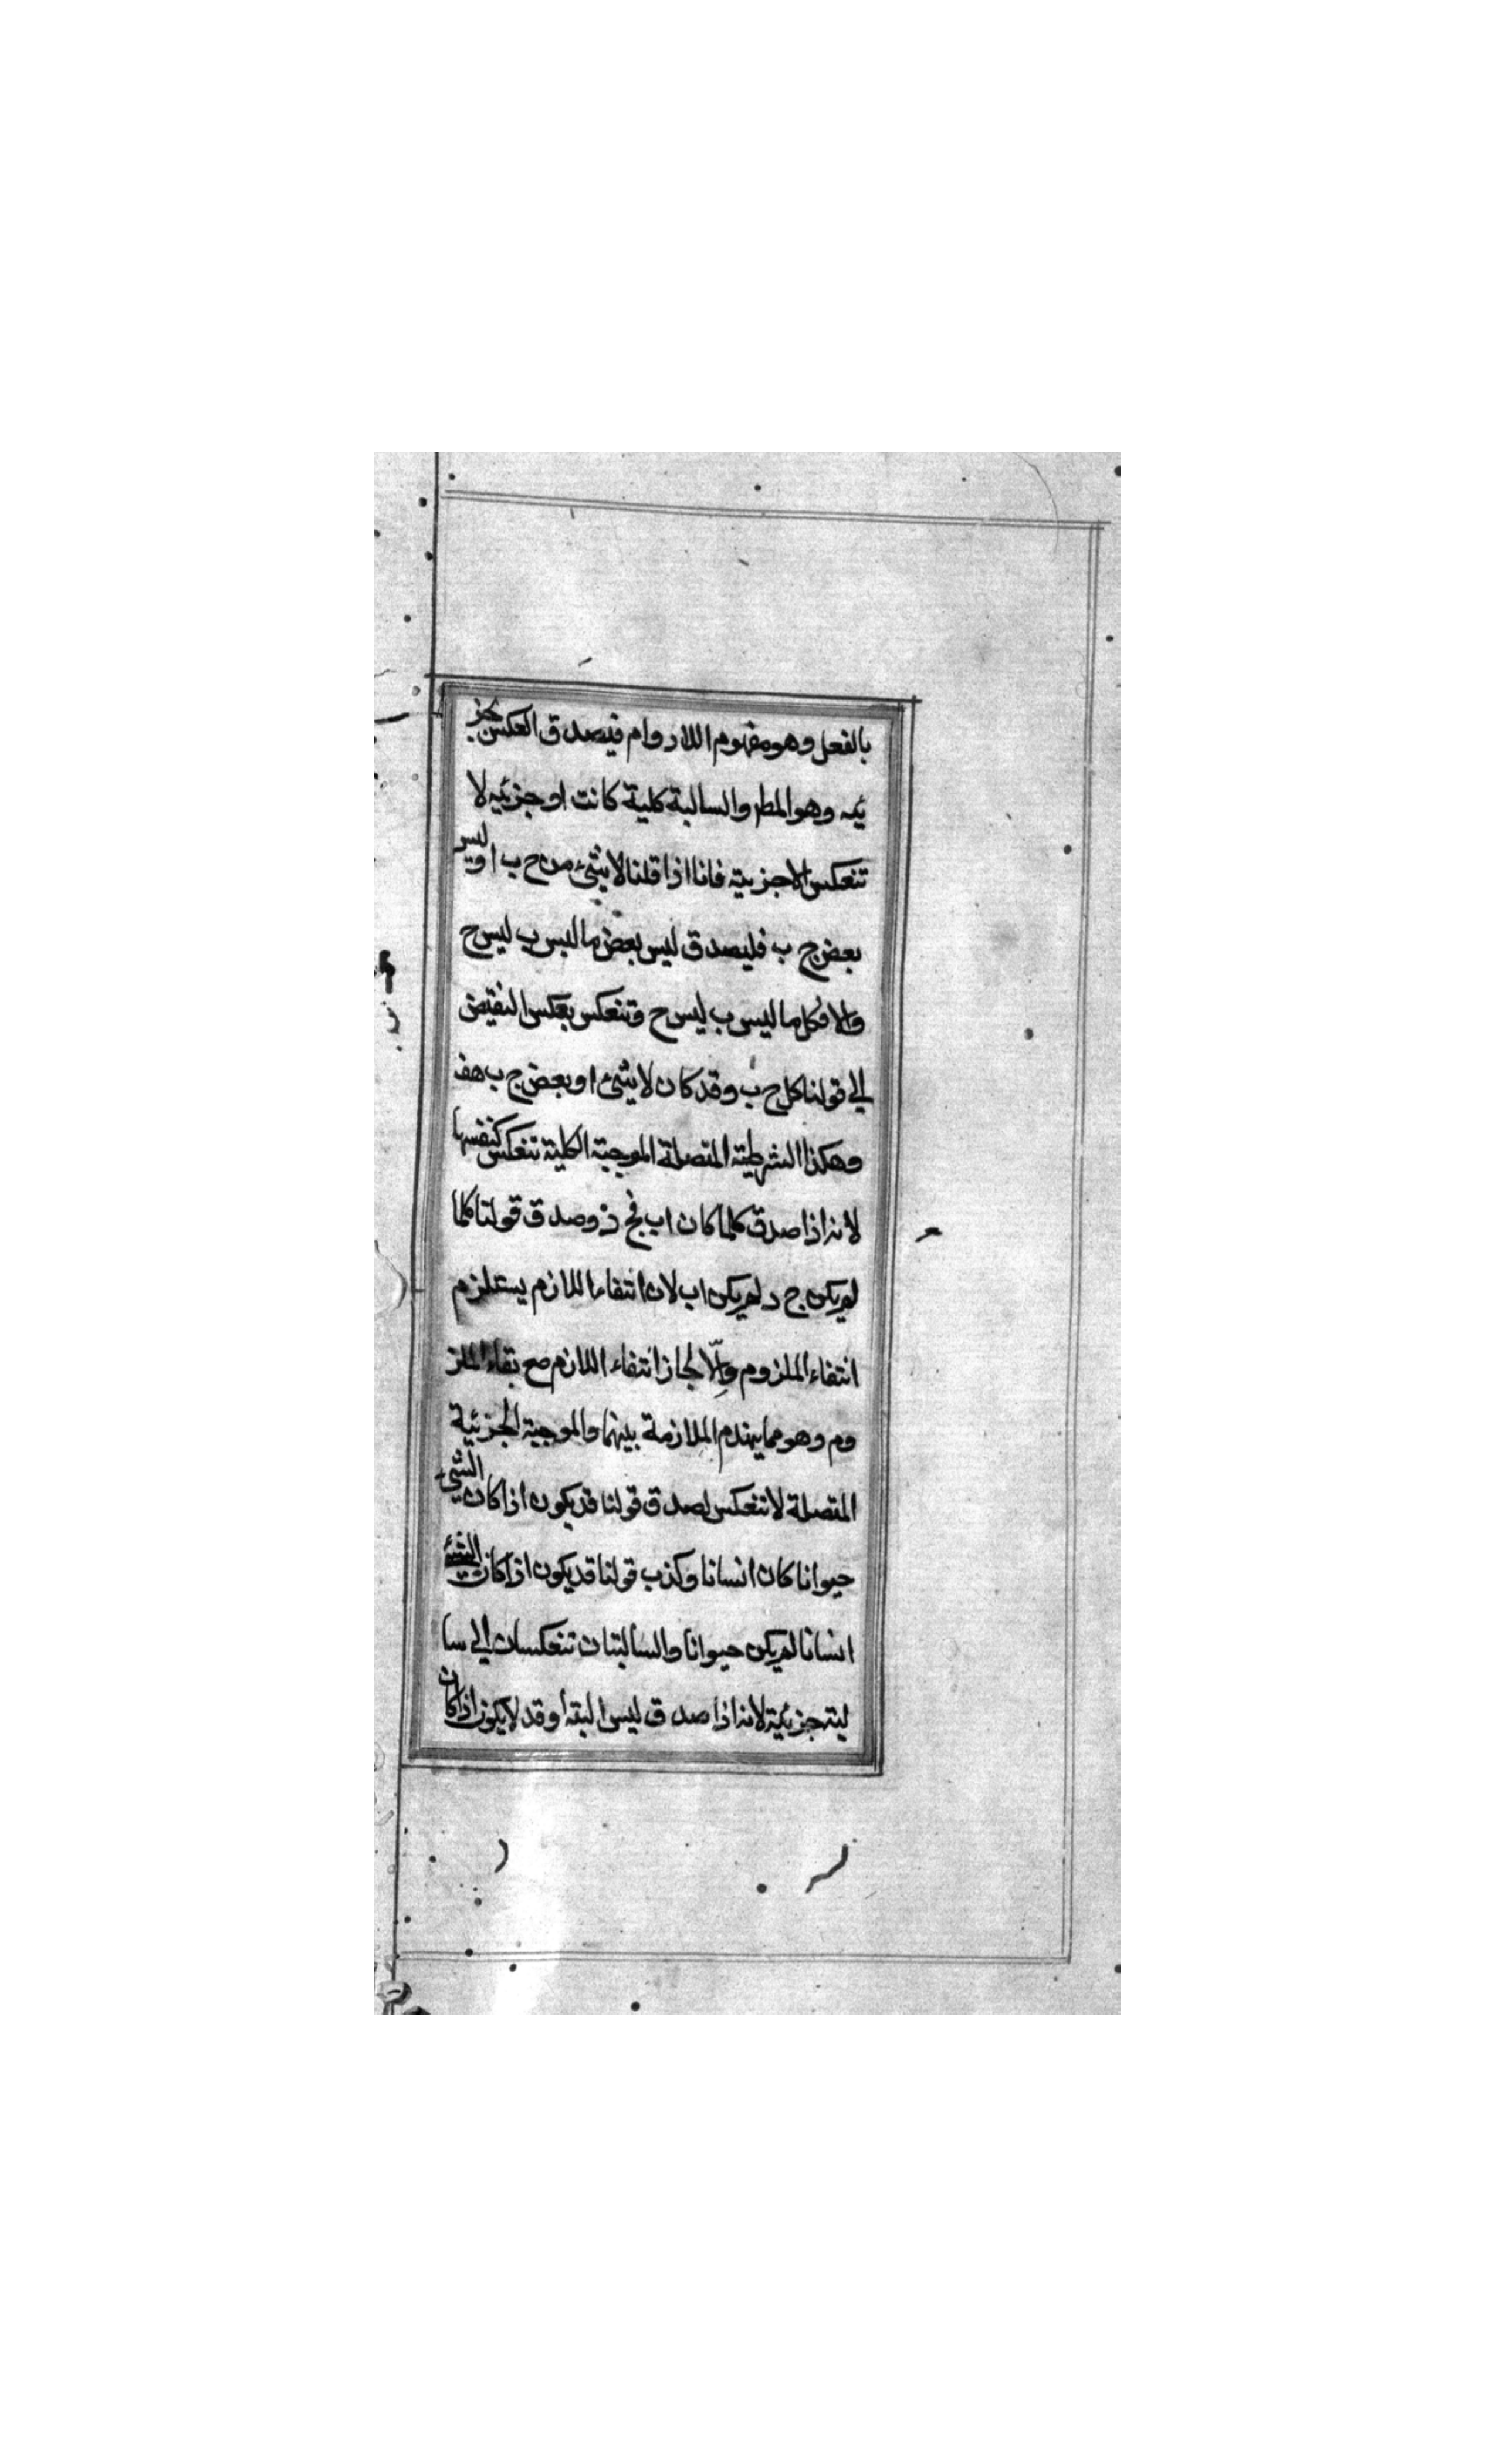 بالفعل وهو مفهوم اللادوام فيصدق العكس بجز
ئيه وهو المط والسالبة كلية كانت او جزئيه لا
تنعكس الا جزيية فانا اذا قلنا لا شئ من ج ب او ليس
بعض ج ب فليصدق ليس بعض ما ليس ب ليس ج
والا فكل ما ليس ب ليس ج وتنعكس بعكس النقيض
الي قولنا كل ج ب وقد كان لا شئ او بعض ج ب هف
وهكذا الشرطية المتصلة الموجبة الكلية تنعكس كنفسها
لانه اذا صدق كلما كان اب فج د وصدق قولنا كلما
لم يكن ج د لم يكن اب لان انتفاء اللازم يستلزم
انتفاء الملزوم والّا لجاز انتفاء اللازم مع بقاء الملز
وم وهو مما يهدم الملازمة بينهما والموجبة الجزئية
المتصلة لا تنعكس لصدق قولنا قد يكون اذا كان الشئ
حيوانا كان انسانا وكذب قولنا قد يكون اذا كان الشئ
انسانا لم يكن حيوانا والسالبتان تنعكسان الي سا
لبة جزئية لانه اذا صدق ليس البتة او قد لا يكون اذا كان